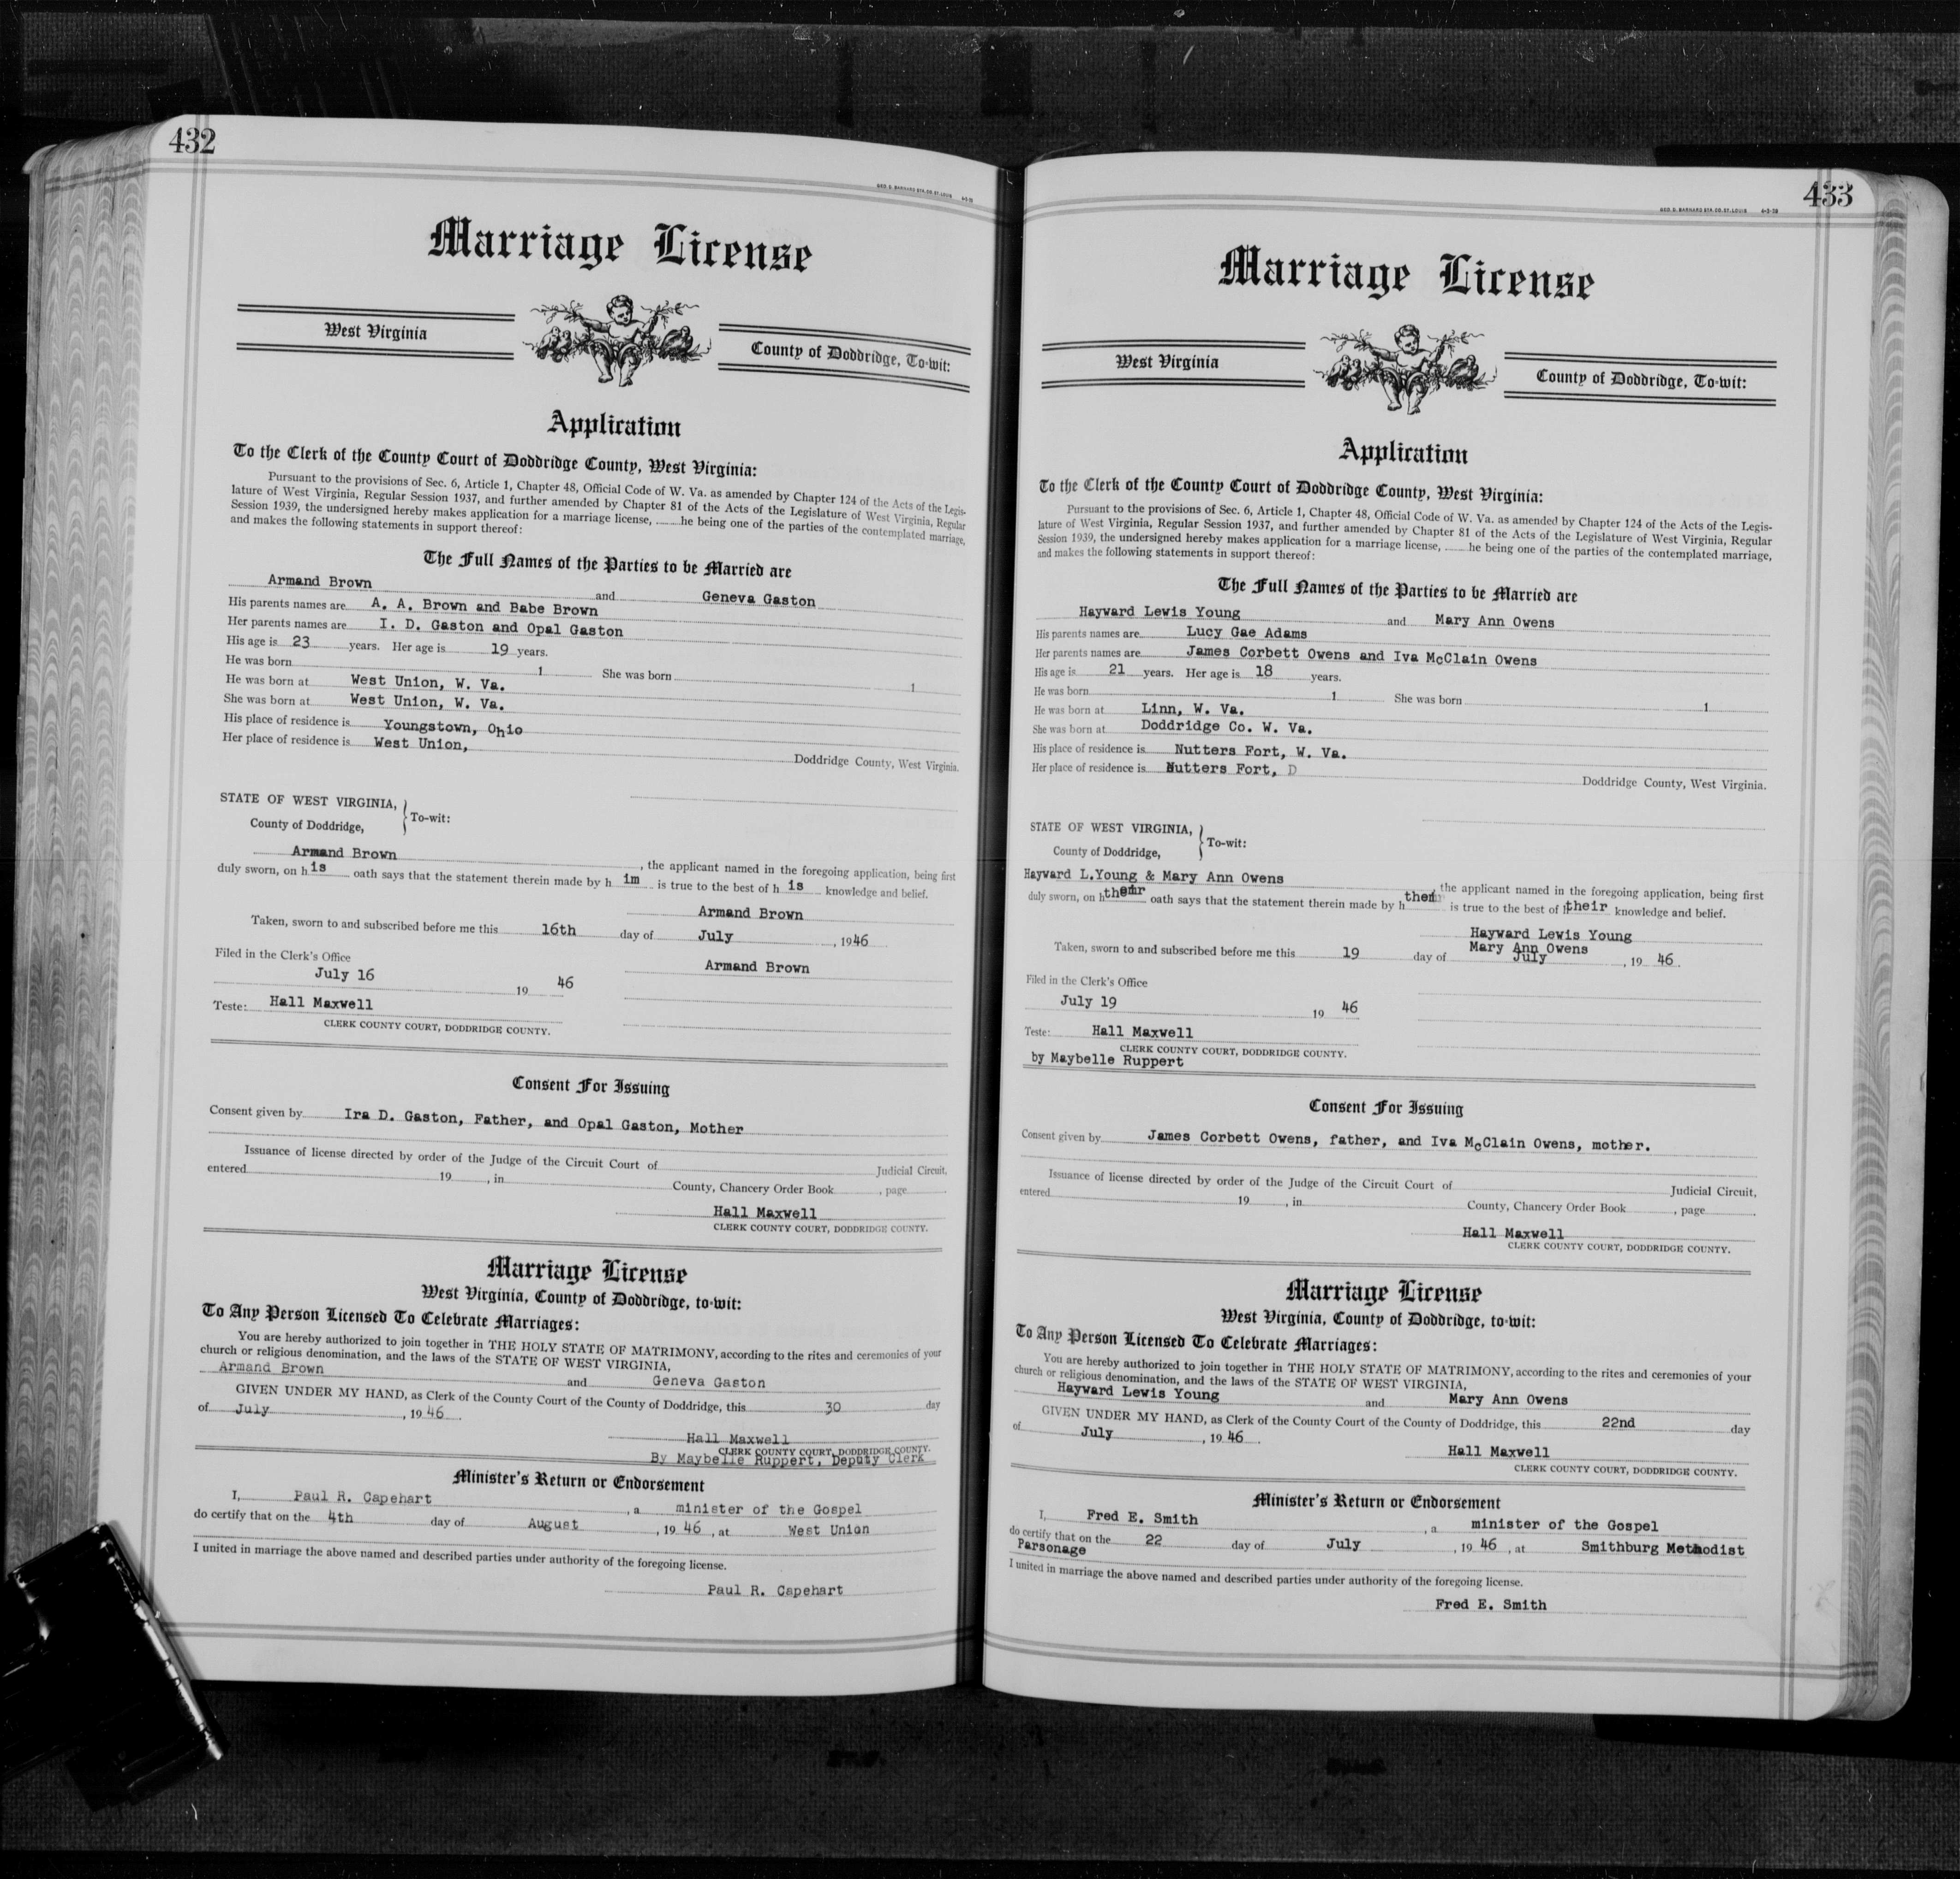 432
GEO. D. BARNARD STA. CO. ST. LOUIS
Marriage License
West Virginia
County of Doddridge, To-wit:
Application
To the Clerk of the County Court of Doddridge County, West Virginia:
Pursuant to the provisions of Sec. 6, Article 1, Chapter 48, Official Code of W. Va. as amended by Chapter 124 of the Acts of the Legis-
lature of West Virginia, Regular Session 1937, and further amended by Chapter 81 of the Acts of the Legislature of West Virginia, Regular
Session 1939, the undersigned hereby makes application for a marriage license, he being one of the parties of the contemplated marriage,
and makes the following statements in support thereof:
The Full Names of the Parties to be Married are
Armand Brown and Geneva Gaston
His parents names are A. A. Brown and Babe Brown
Her parents names are I. D. Gaston and Opal Gaston
His age is 23 years. Her age is 19 years.
He was born 1 She was born 1
He was born at West Union, W. Va.
She was born at West Union, W. Va.
His place of residence is Youngstown, Ohio
Her place of residence is West Union, Doddridge County, West Virginia.
STATE OF WEST VIRGINIA,
County of Doddridge, To-wit:
Armand Brown, the applicant named in the foregoing application, being first
duly sworn, on his oath says that the statement therein made by h im is true to the best of h is knowledge and belief.
Armand Brown
Taken, sworn to and subscribed before me this 16th day of July, 1946
Filed in the Clerk's Office
Armand Brown
July 16 19 46
Teste: Hall Maxwell
CLERK COUNTY COURT, DODDRIDGE COUNTY.
Consent For Issuing
Consent given by Ira D. Gaston, Father, and Opal Gaston, Mother
Issuance of license directed by order of the Judge of the Circuit Court of Judicial Circuit,
entered 19 , in County, Chancery Order Book , page
Hall Maxwell
CLERK COUNTY COURT, DODDRIDGE COUNTY.
Marriage License
West Virginia, County of Doddridge, to-wit:
To Any Person Licensed To Celebrate Marriages:
You are hereby authorized to join together in THE HOLY STATE OF MATRIMONY, according to the rites and ceremonies of your
church or religious denomination, and the laws of the STATE OF WEST VIRGINIA,
Armand Brown and Geneva Gaston
GIVEN UNDER MY HAND, as Clerk of the County Court of the County of Doddridge, this 30 day
of July, 1946.
Hall Maxwell
CLERK COUNTY COURT, DODDRIDGE COUNTY.
By Maybelle Ruppert, Deputy Clerk
Minister's Return or Endorsement
I, Paul R. Capehart, a minister of the Gospel
do certify that on the 4th day of August, 1946, at West Union
I united in marriage the above named and described parties under authority of the foregoing license.
Paul R. Capehart
433
GEO. D. BARNARD STA. CO. ST. LOUIS
Marriage License
West Virginia
County of Doddridge, To-wit:
Application
To the Clerk of the County Court of Doddridge County, West Virginia:
Pursuant to the provisions of Sec. 6, Article 1, Chapter 48, Official Code of W. Va. as amended by Chapter 124 of the Acts of the Legis-
lature of West Virginia, Regular Session 1937, and further amended by Chapter 81 of the Acts of the Legislature of West Virginia, Regular
Session 1939, the undersigned hereby makes application for a marriage license, he being one of the parties of the contemplated marriage,
and makes the following statements in support thereof:
The Full Names of the Parties to be Married are
Hayward Lewis Young and Mary Ann Owens
His parents names are Lucy Gae Adams
Her parents names are James Corbett Owens and Iva McClain Owens
His age is 21 years. Her age is 18 years.
He was born 1 She was born 1
He was born at Linn, W. Va.
She was born at Doddridge Co. W. Va.
His place of residence is Nutters Fort, W. Va.
Her place of residence is Nutters Fort, D Doddridge County, West Virginia.
STATE OF WEST VIRGINIA,
County of Doddridge, To-wit:
Hayward L.Young & Mary Ann Owens, the applicant named in the foregoing application, being first
duly sworn, on h their oath says that the statement therein made by h them is true to the best of h their knowledge and belief.
Hayward Lewis Young
Mary Ann Owens
Taken, sworn to and subscribed before me this 19 day of July, 19 46.
Filed in the Clerk's Office
July 19 19 46
Teste: Hall Maxwell
CLERK COUNTY COURT, DODDRIDGE COUNTY.
by Maybelle Ruppert
Consent For Issuing
Consent given by James Corbett Owens, father, and Iva McClain Owens, mother.
Issuance of license directed by order of the Judge of the Circuit Court of Judicial Circuit,
entered 19 , in County, Chancery Order Book , page
Hall Maxwell
CLERK COUNTY COURT, DODDRIDGE COUNTY.
Marriage License
West Virginia, County of Doddridge, to-wit:
To Any Person Licensed To Celebrate Marriages:
You are hereby authorized to join together in THE HOLY STATE OF MATRIMONY, according to the rites and ceremonies of your
church or religious denomination, and the laws of the STATE OF WEST VIRGINIA,
Hayward Lewis Young and Mary Ann Owens
GIVEN UNDER MY HAND, as Clerk of the County Court of the County of Doddridge, this 22nd day
of July, 19 46.
Hall Maxwell
CLERK COUNTY COURT, DODDRIDGE COUNTY.
Minister's Return or Endorsement
I, Fred E. Smith, a minister of the Gospel
do certify that on the 22 day of July, 19 46, at Smithburg Methodist
Parsonage
I united in marriage the above named and described parties under authority of the foregoing license.
Fred E. Smith